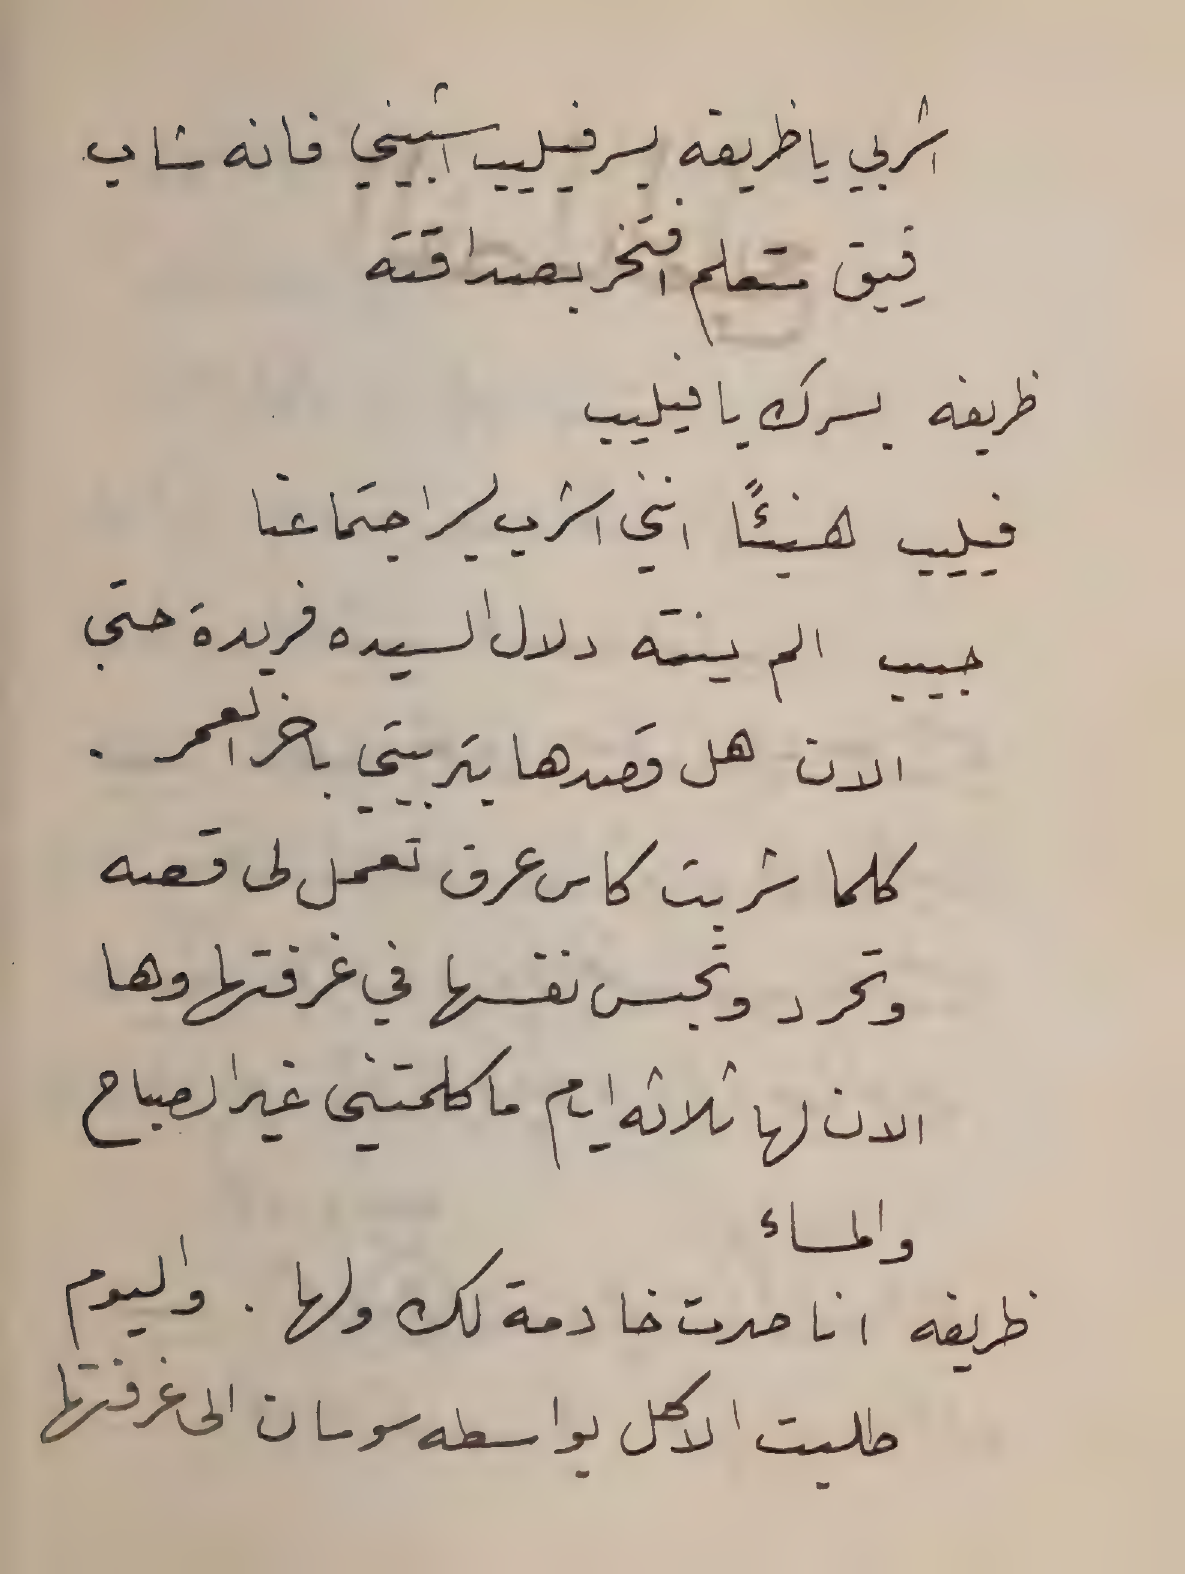 اشربي يا ظريفه بسر فيليب اشبيني فانه شاب
فيق متعلم افتخر بصداقته
ظريفه بسرك يا فيليب
فيليب هنيئًا انني اشرب لسر اجتماعنا
حبيب الم ينته دلال السيده فريدة حتي
الان هل قصدها بتربيتي باخر العمر .
كلما شربت كاس عرق تعمل لى قصه
وتحرد وتحبس نفسها في غرفتها وها
الان لها ثلاثه ايام ما كلمتني غير الصباح
والمساء
ظريفه انا صرت خادمة لك ولها . واليوم
طلبت الاكل بواسطه سوسان الى غرفتها